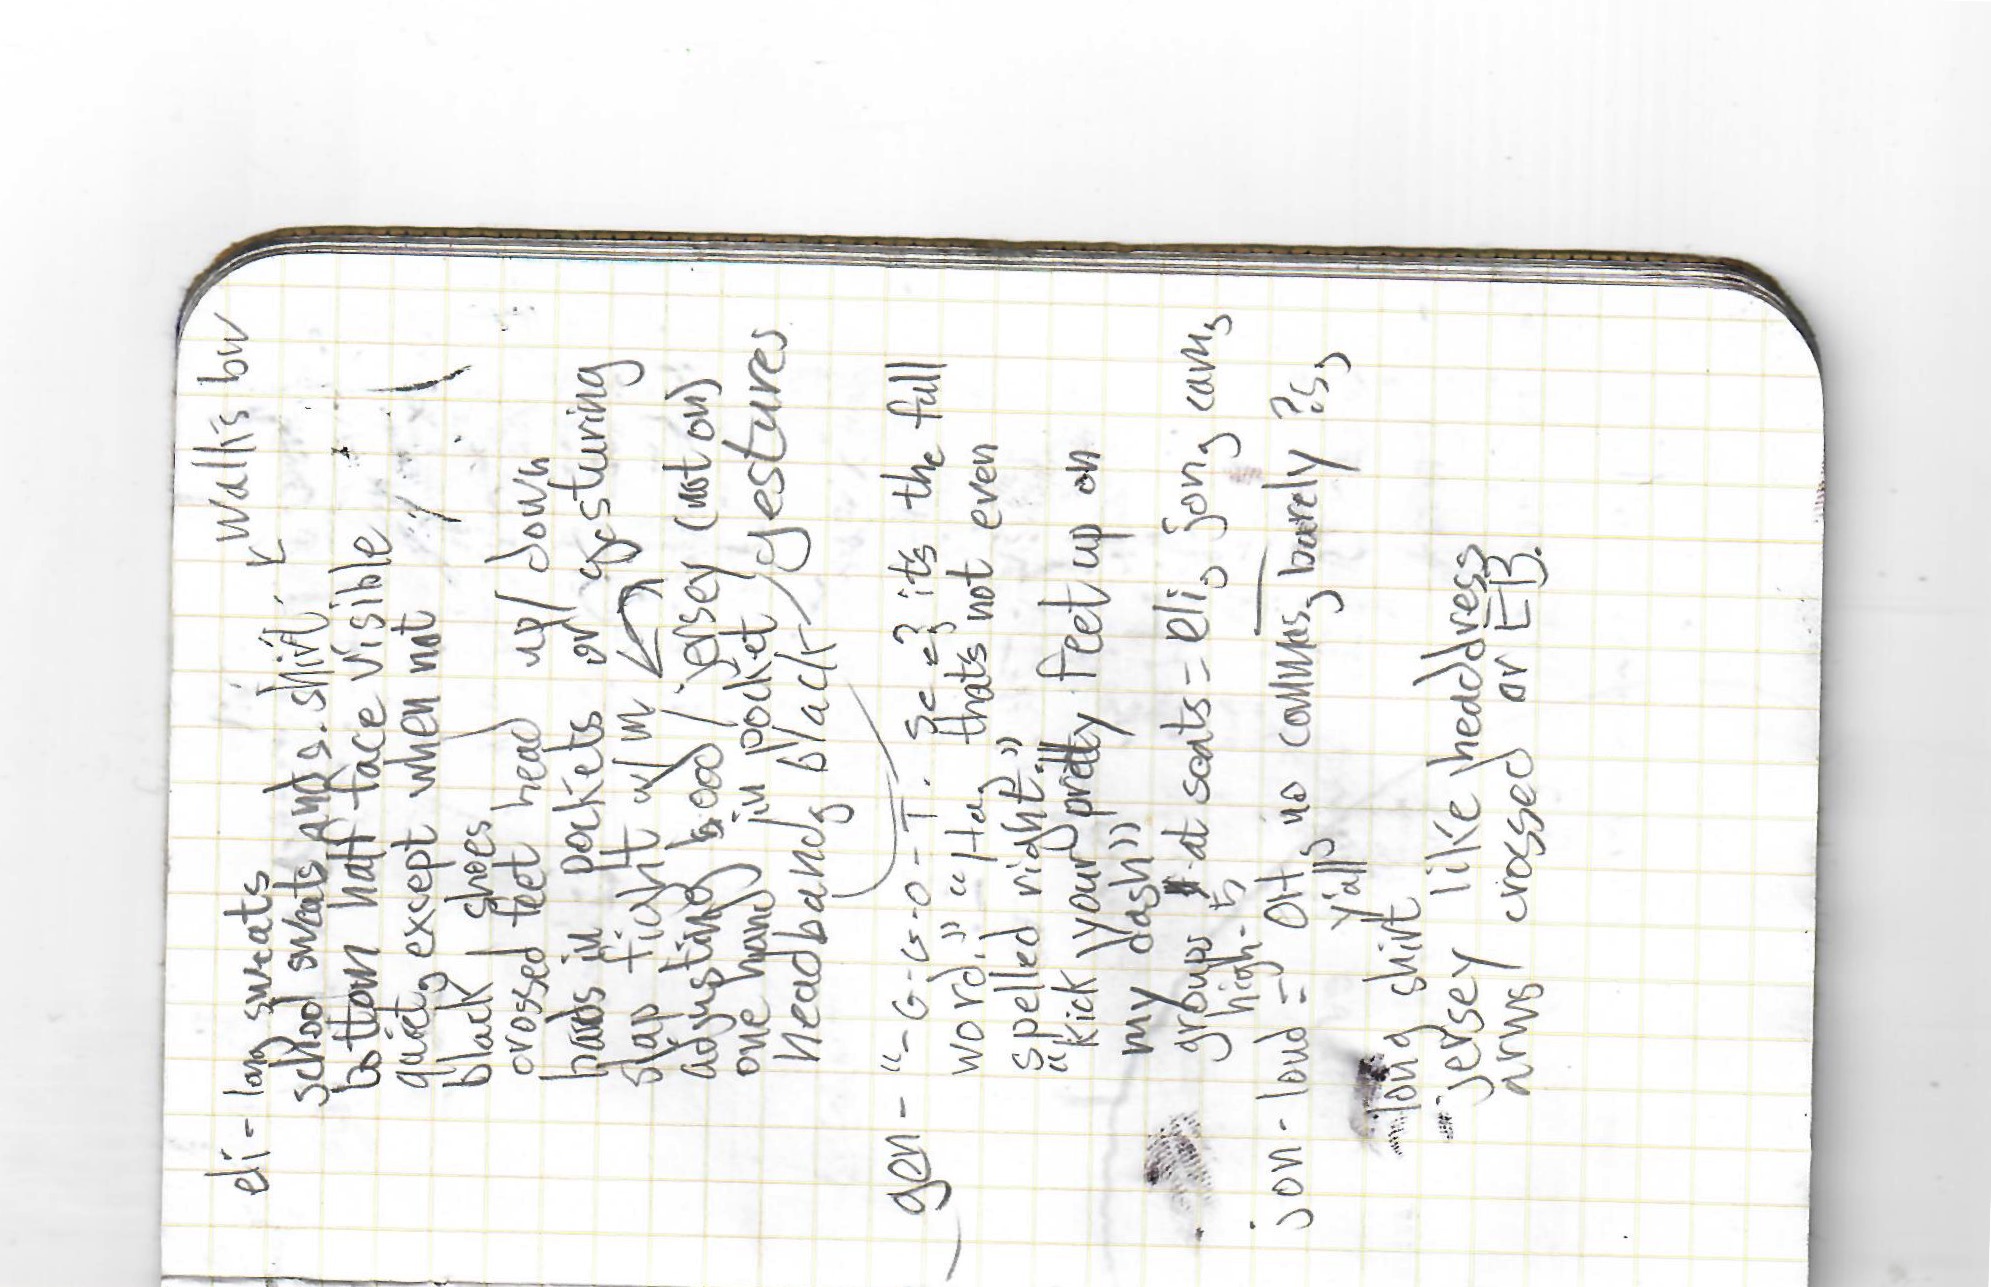 walks bw
eli - long sweats
school sweats and s. shirt
bottom half face visible
quiet, except when not
black shoes
crossed feet head up/down
hands in pockets or gesturing
slap fight w/ m
adjusting hood / jersey (not on)
one hand in pocket, gestures
headband, black
gen - "-G-G-O-T. See? it's the full
word." "Ha, that's not even
spelled right."
"kick your pretty feet up on
my dash"
groups at seats = eli, jon, cam,
high-5
jon - loud = OH, no commas, barely ?s,
y'all
- long shirt
- jersey like headdress
arms crossed or EB.